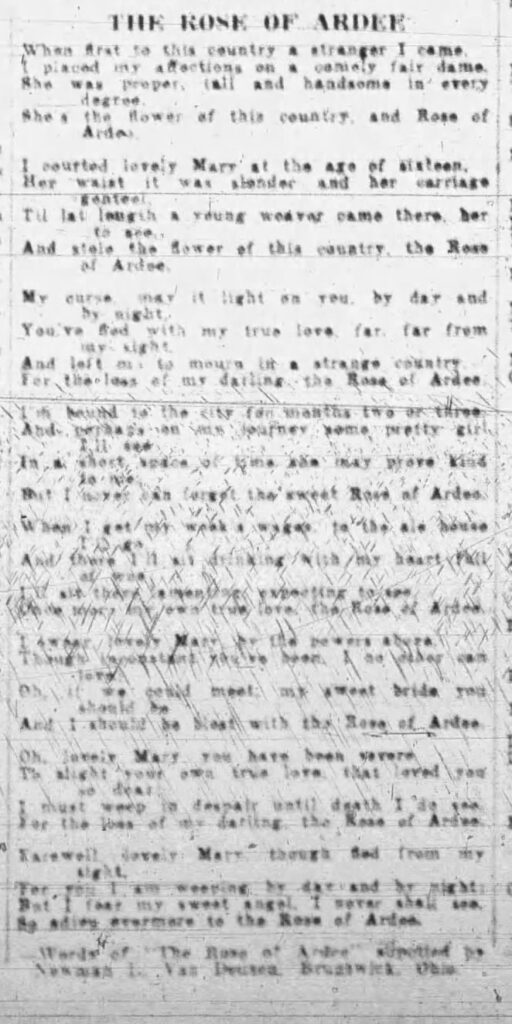 THE ROSE OF ARDEE
When first to this country a stranger I came,
I placed my affections on a comely fair dame.
She was proper, tall and handsome in every
degree.
She's the flower of this country, and Rose of
Ardee.
I courted lovely Mary at the age of sixteen,
Her waist it was slender and her carriage
genteel,
Til lat length a young weaver came there, her
to see,
And stole the flower of this country, the Rose
of Ardee.
My curse, may it light on you, by day and
by night,
You've fled with my true love, far, far from
my sight,
And left me to mourn in a strange country
For the loss of my darling, the Rose of Ardee.
I'm bound to the city for months two or three
And perhaps on my journey some pretty girl
I'll see
In a short space of time she may prove kind
to me
But I never can forget the sweet Rose of Ardee.
When I get my week's wages, to the ale house
I'll go,
And there I'll sit drinking with my heart full
of woe
I'll sit there lamenting, expecting to see
Once more my own true love, the Rose of Ardee.
I swear lovely Mary, by the powers above,
Though inconstant you've been, I no other can
love
Oh, if we could meet, my sweet bride you
should be
And I should be blest with the Rose of Ardee.
Oh, lovely Mary you have been severe
To slight your own true love, that loved you
so dear;
I must weep in despair until death I do see,
For the loss of my darling, the Rose of Ardee.
Farewell, lovely Mary, though fled from my
sight,
For you I am weeping by day and by night;
But I fear my sweet angel, I never shall see,
So adieu evermore to the Rose of Ardee.
Words of "The Rose of Ardee" supplied by
Newman L. Van Deusen, Brunswick, Ohio.